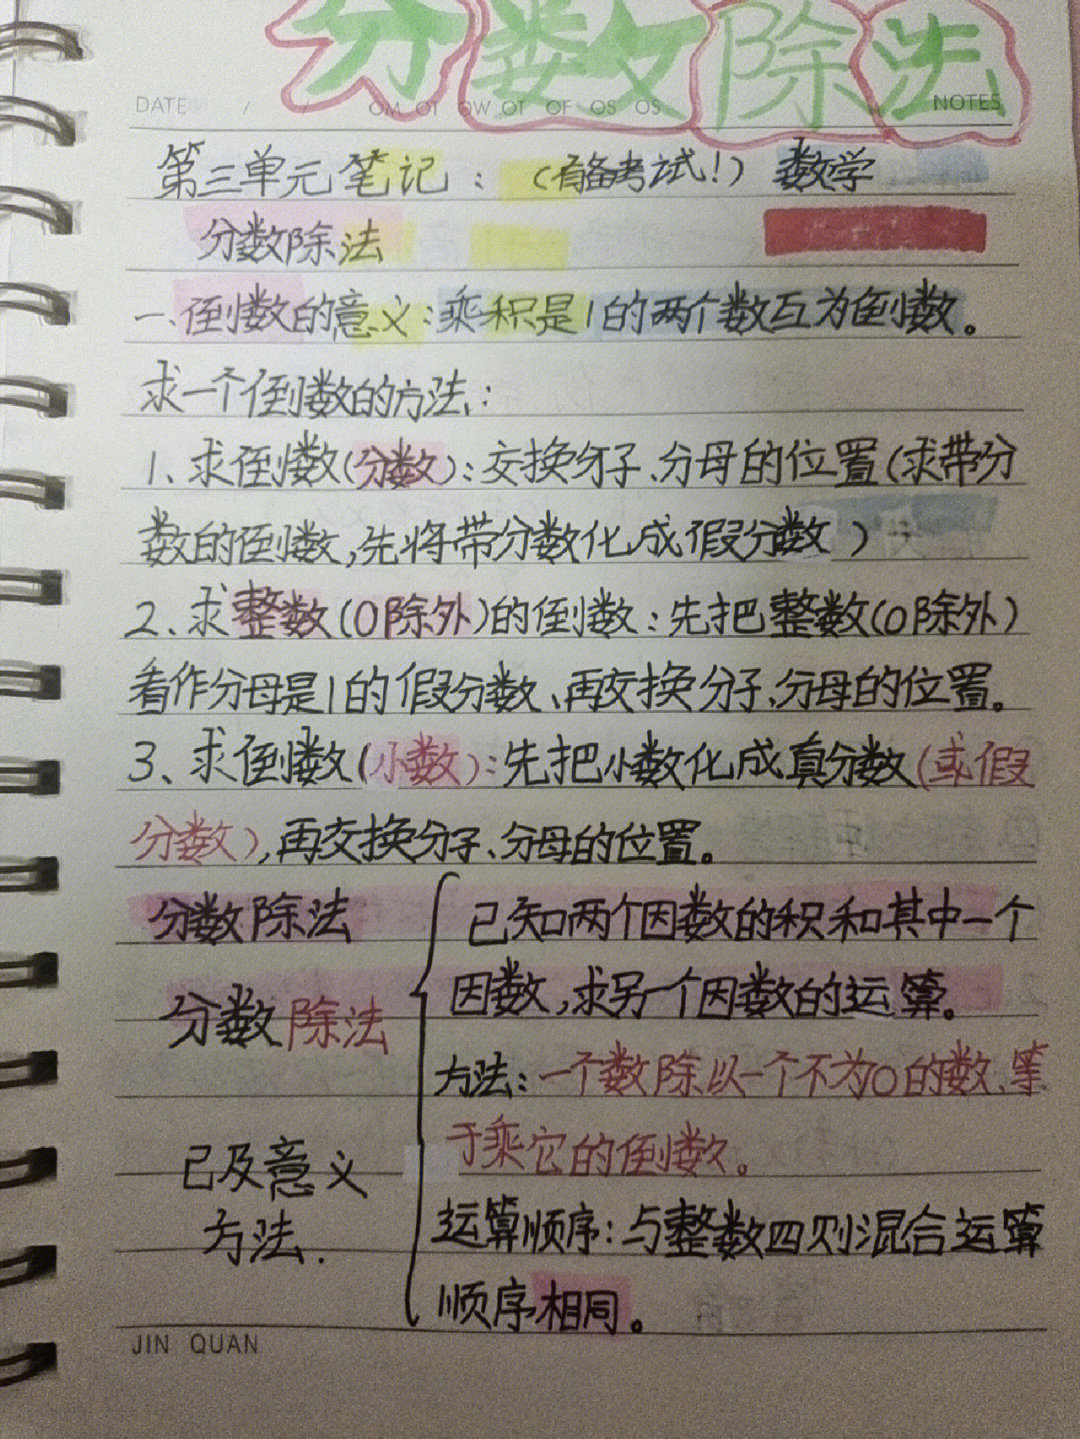 分数除法
DATE / / NOTES
第三单元笔记：（有备考试！）数学
分数除法
一、倒数的意义：乘积是1的两个数互为倒数。
求一个倒数的方法：
1、求倒数(分数)：交换分子、分母的位置(求带分
数的倒数,先将带分数化成假分数）
2、求整数(0除外)的倒数：先把整数(0除外)
看作分母是1的假分数、再交换分子、分母的位置。
3、求倒数(小数)：先把小数化成真分数(或假
分数),再交换分子、分母的位置。
分数除法
分数除法
已及意义
方法.
已知两个因数的积和其中一个
因数,求另一个因数的运算。
方法：一个数除以一个不为0的数、等
于乘它的倒数。
运算顺序：与整数四则混合运算
顺序相同。
JIN QUAN